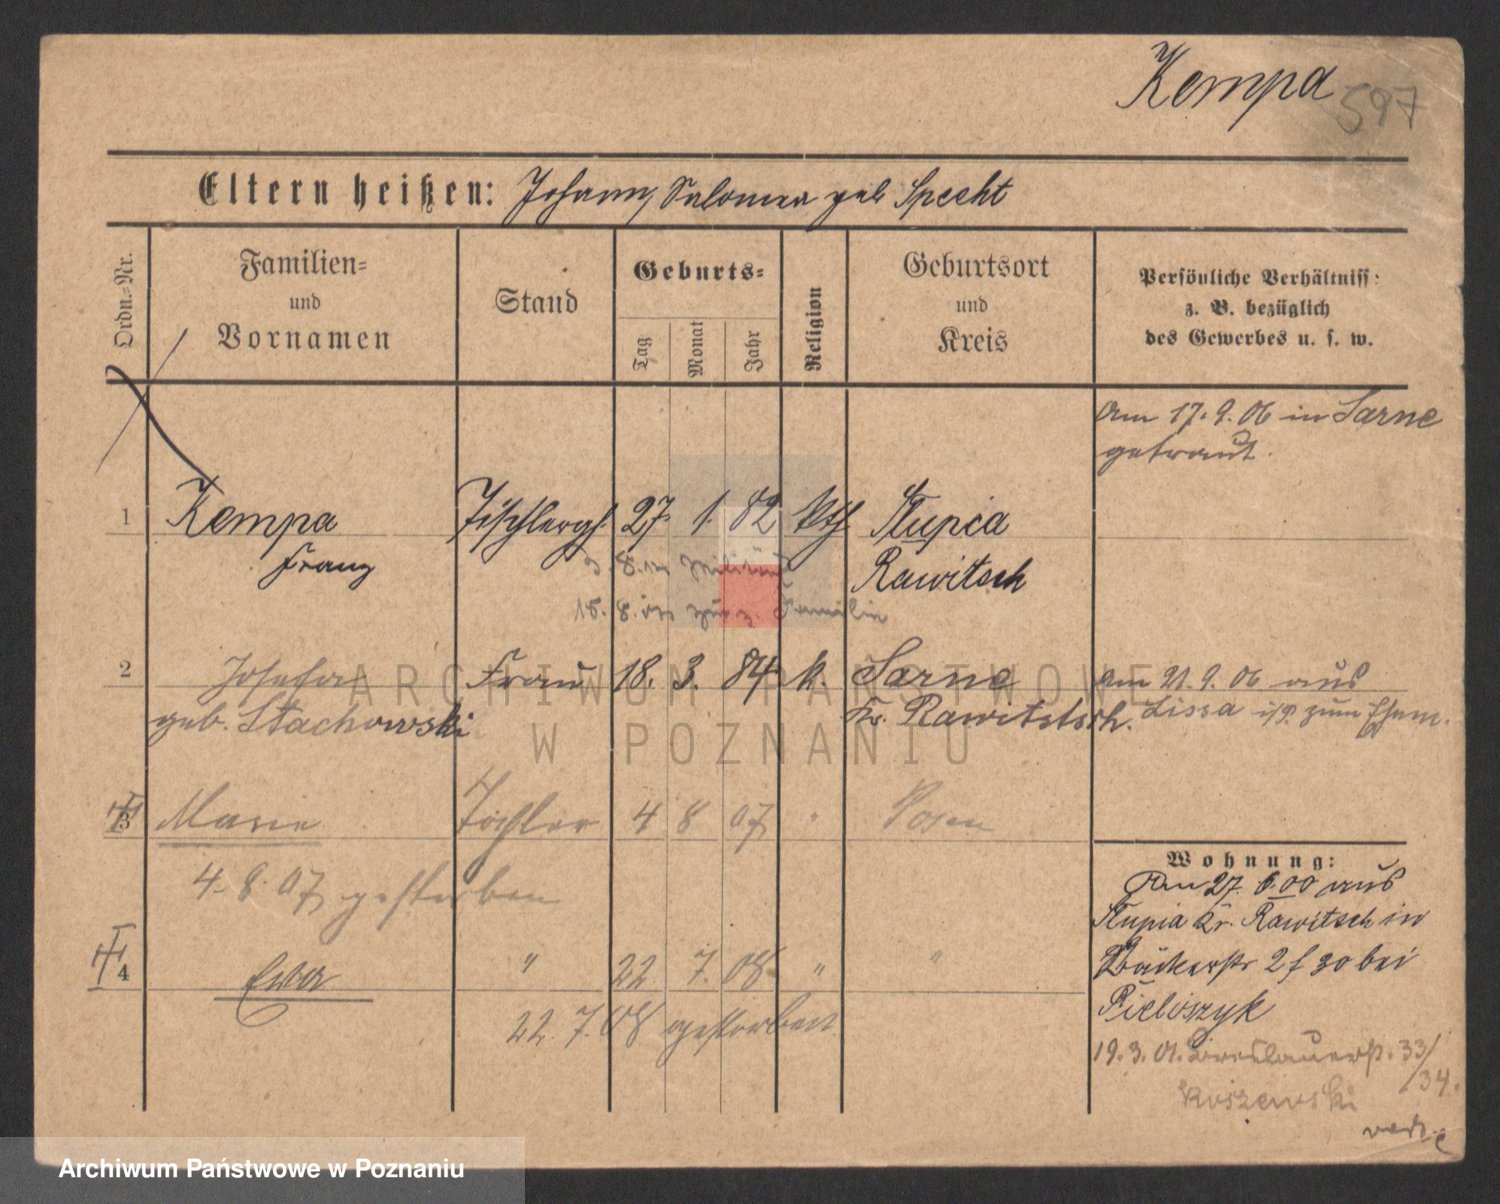 Kempa
597
Eltern heißen: Johann, Salomea geb Specht
Ordn.-Nr.
Familien-
und
Vornamen
Stand
Geburts-
Tag
Monat
Jahr
Religion
Geburtsort
und
Kreis
Persönliche Verhältniss:
z. B. bezüglich
des Gewerbes u. s. w.
am 17. 9. 06 in Sarne
getraut.
1 Kempa Tischlergs. 27. 1. 82 kth Stupia
Franz Rawitsch
8. Militär
15. 8. zur Familie
2 Josefa Frau 18. 3. 84 k. Sarne am 21. 9. 06 aus
geb. Stachowski Kr. Rawitstsch. Lissa i/P. zum Ehem.
3 Marie Tochter 4 8 07 " Posen
4. 8. 07 gestorben
Wohnung:
Am 27. 6. 00 aus
Stupia Kr. Rawitsch in
4 Ewa " 22 7. 08 " "
Bäckerstr 2 f 30 bei
22. 7. 08 gestorben
Pieloszyk
19. 3. 01. Breslauerstr. 33/
34.
Koszewski
ARCHIWUM PAŃSTWOWE
W POZNANIU
Archiwum Państwowe w Poznaniu